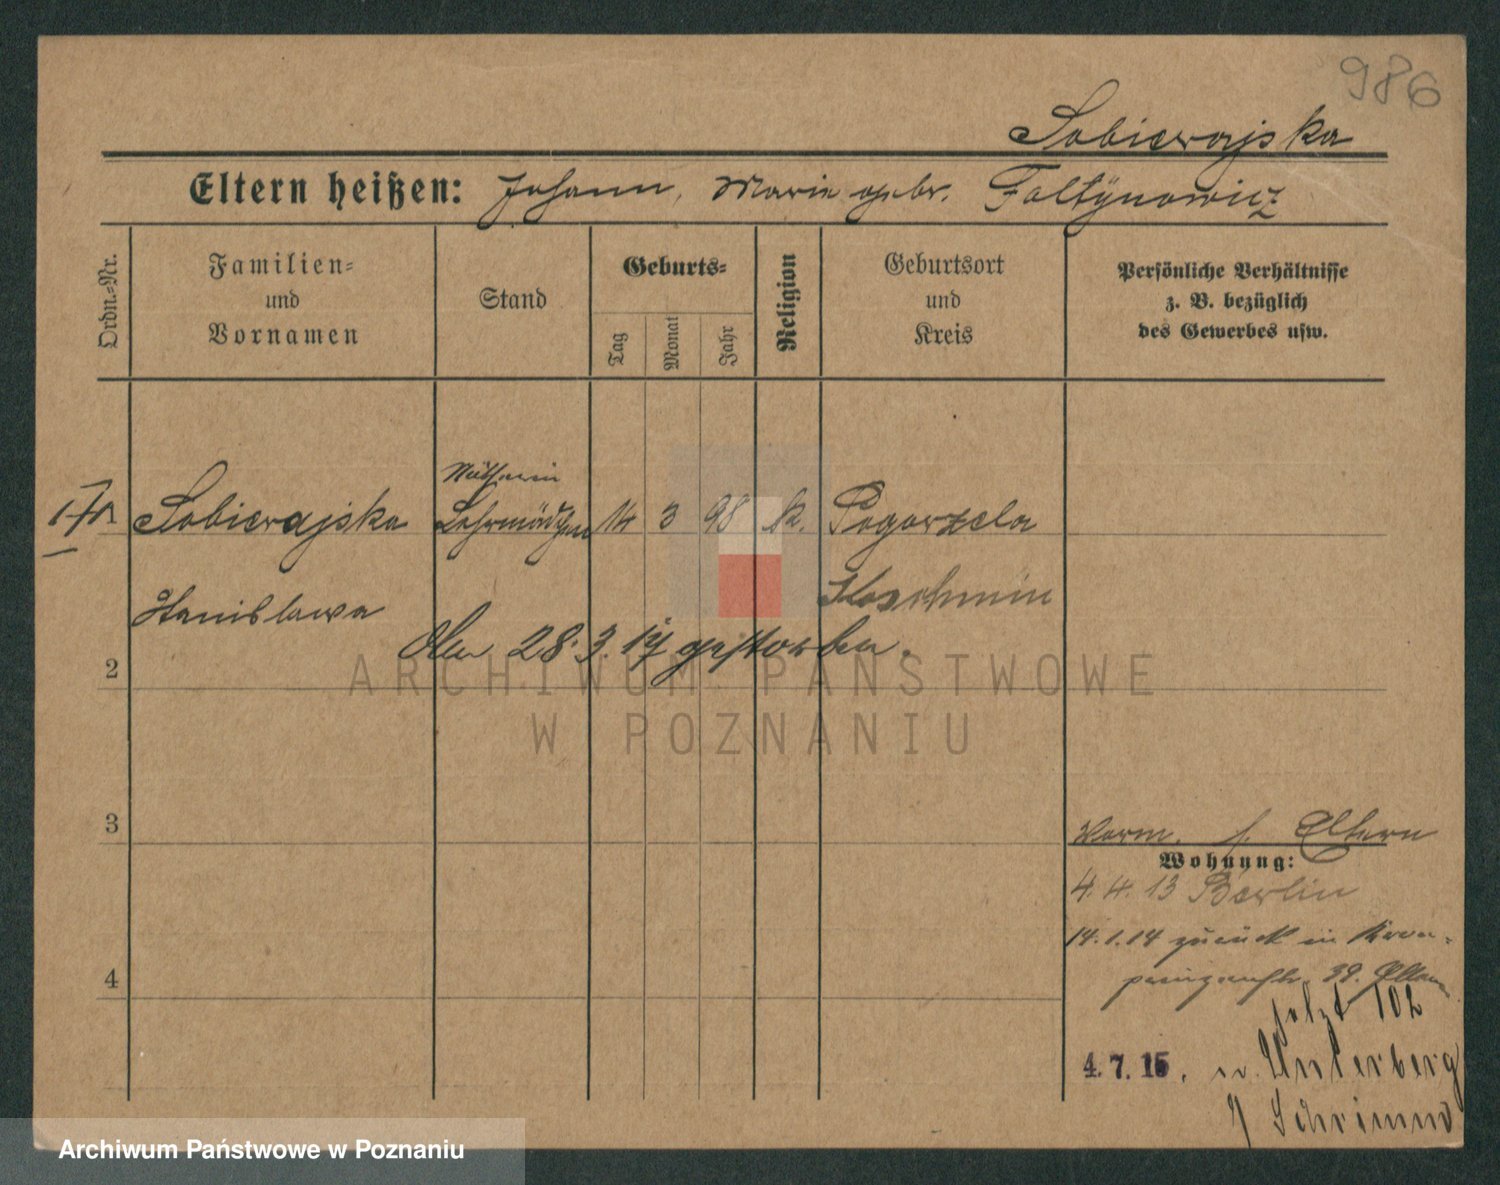 986
Sobierajska
Eltern heißen: Johann, Marie gebr. Faltynowicz
Ordn.-Nr.
Familien-
und
Vornamen
Stand
Geburts-
Tag
Monat
Jahr
Religion
Geburtsort
und
Kreis
Persönliche Verhältnisse
z. B. bezüglich
des Gewerbes usw.
Sobierajska
Lehrmädchen
14 3 98 k. Pogorzela
Stanislawa
Koschmin
Am 28.3.17 gestorben.
2
3
4
Vorm. s. Eltern
Wohnung:
4.4.13 Berlin
14.1.14 zurück in Kron-
prinzenstr. 39. Eltern
jetzt 102
4.7.15. n. Unterberg
Schrimm
ARCHIWUM PAŃSTWOWE
W POZNANIU
Archiwum Państwowe w Poznaniu